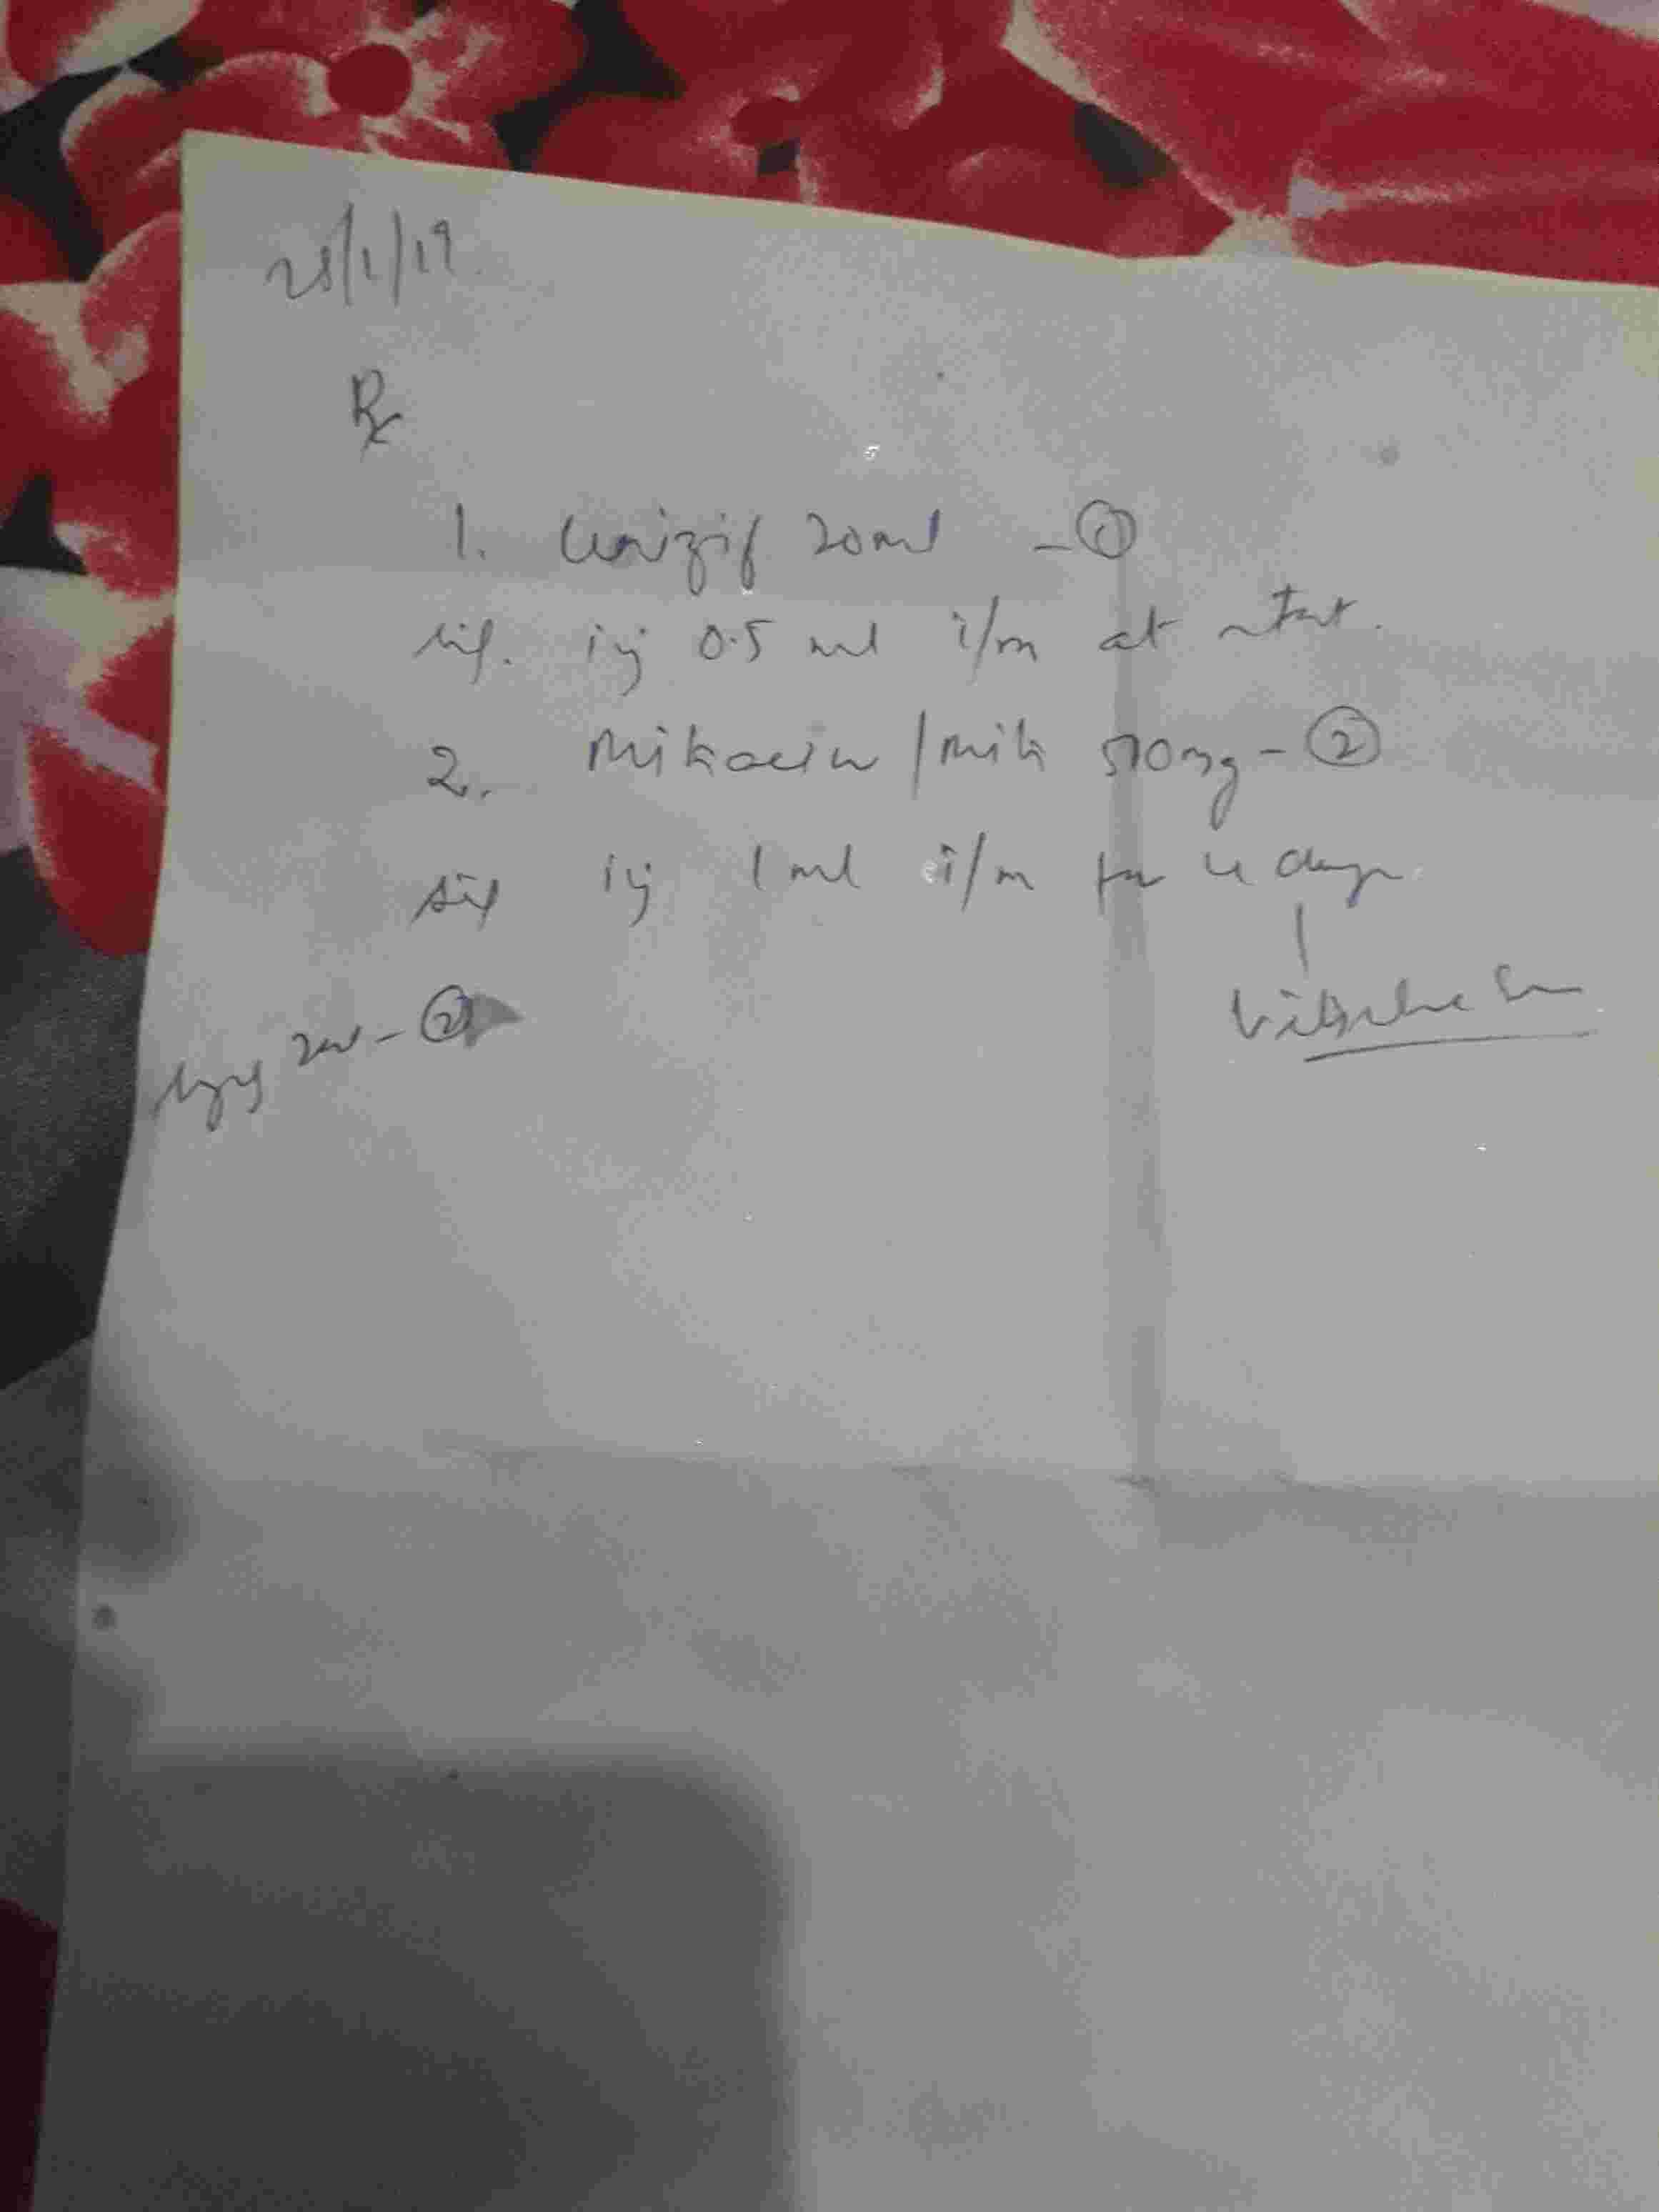 28/1/19
Rx
1. 20ml - ①
sig. inj 0.5 ml i/m at stat.
2. Mikacin / Mik 500mg - ②
sig inj 1 ml i/m for 4 days.
2ml - ②